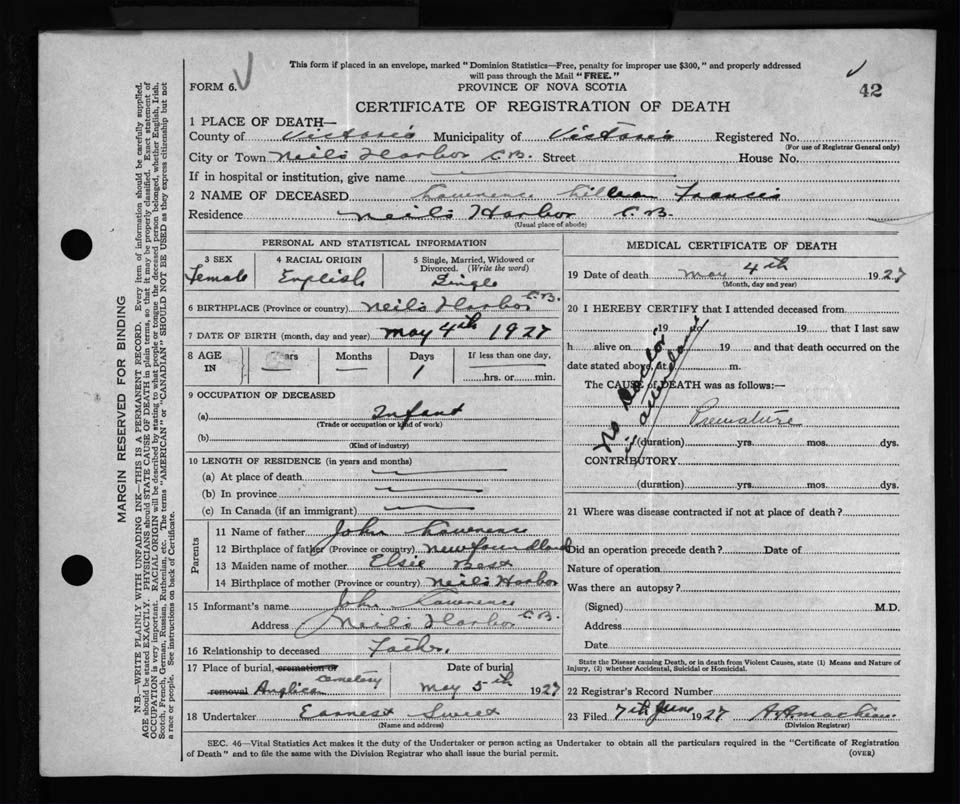 This form if placed in an envelope, marked "Dominion Statistics—Free, penalty for improper use $300," and properly addressed
will pass through the Mail "FREE."
FORM 6.
PROVINCE OF NOVA SCOTIA
42
CERTIFICATE OF REGISTRATION OF DEATH
1 PLACE OF DEATH—
County of Victoria Municipality of Victoria Registered No.
(For use of Registrar General only)
City or Town Neil's Harbor C.B. Street House No.
If in hospital or institution, give name
2 NAME OF DECEASED Lawrence Francis
Residence Neil's Harbor C.B.
(Usual place of abode)
PERSONAL AND STATISTICAL INFORMATION
3 SEX 4 RACIAL ORIGIN 5 Single, Married, Widowed or
Divorced. (Write the word)
Female English Single
6 BIRTHPLACE (Province or country) Neil's Harbor C.B.
7 DATE OF BIRTH (month, day and year) May 4th 1927
8 AGE IN Years Months Days If less than one day,
— — 1 hrs. or min.
9 OCCUPATION OF DECEASED
(a) Infant
(Trade or occupation or kind of work)
(b)
(Kind of industry)
10 LENGTH OF RESIDENCE (in years and months)
(a) At place of death
(b) In province
(c) In Canada (if an immigrant)
Parents
11 Name of father John Lawrence
12 Birthplace of father (Province or country) Newfoundland
13 Maiden name of mother Elsie Best
14 Birthplace of mother (Province or country) Neil's Harbor
15 Informant's name John Lawrence
Address Neil's Harbor C.B.
16 Relationship to deceased Father
17 Place of burial, cremation or Date of burial
removal Anglican cemetery May 5th 1927
18 Undertaker Earnest Sweet
(Name and address)
MEDICAL CERTIFICATE OF DEATH
19 Date of death May 4th 1927
(Month, day and year)
20 I HEREBY CERTIFY that I attended deceased from
19 to 19 that I last saw
h alive on 19 and that death occurred on the
date stated above, at m.
The CAUSE of DEATH was as follows:—
No Doctor
in attendance
Premature
(duration) yrs. mos. dys.
CONTRIBUTORY
(duration) yrs. mos. dys.
21 Where was disease contracted if not at place of death?
Did an operation precede death? Date of
Nature of operation
Was there an autopsy?
(Signed) M.D.
Address
Date
State the Disease causing Death, or in death from Violent Causes, state (1) Means and Nature of
Injury, (2) whether Accidental, Suicidal or Homicidal.
22 Registrar's Record Number
23 Filed 7th June 1927
(Division Registrar)
SEC. 46—Vital Statistics Act makes it the duty of the Undertaker or person acting as Undertaker to obtain all the particulars required in the "Certificate of Registration
of Death" and to file the same with the Division Registrar who shall issue the burial permit. (OVER)
MARGIN RESERVED FOR BINDING
N.B.—WRITE PLAINLY WITH UNFADING INK—THIS IS A PERMANENT RECORD. Every item of information should be carefully supplied.
AGE should be stated EXACTLY. PHYSICIANS should STATE CAUSE OF DEATH in plain terms, so that it may be properly classified. Exact statement of
OCCUPATION is very important. RACIAL ORIGIN will be described by stating to what people or tongue the deceased person belonged, whether English, Irish,
Scotch, French, German, Russian, Ruthenian, etc. The terms "AMERICAN" or "CANADIAN" SHOULD NOT BE USED as they express citizenship but not
a race or people. See instructions on back of Certificate.